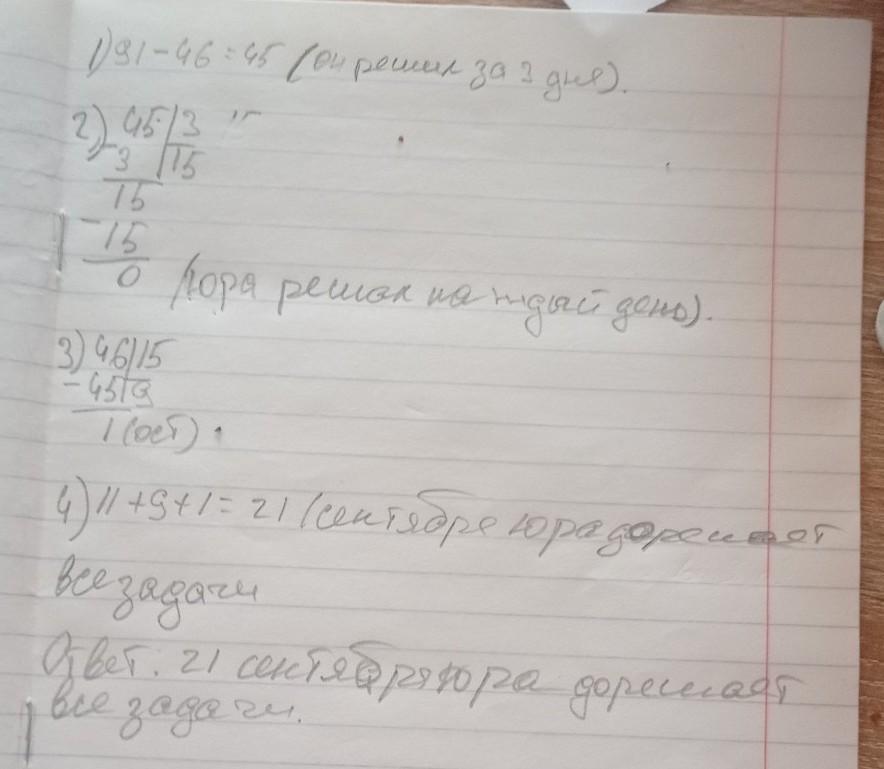 1) 91-46=45 (он решил за 3 дня).
2) 45|3
-3 |15
15
-15
0 (Юра решал каждый день).
3) 46|15
-45|9
1(ост).
4) 11+9+1=21 (сентября Юра дорешает
все задачи
Ответ. 21 сентября Юра дорешает
все задачи.